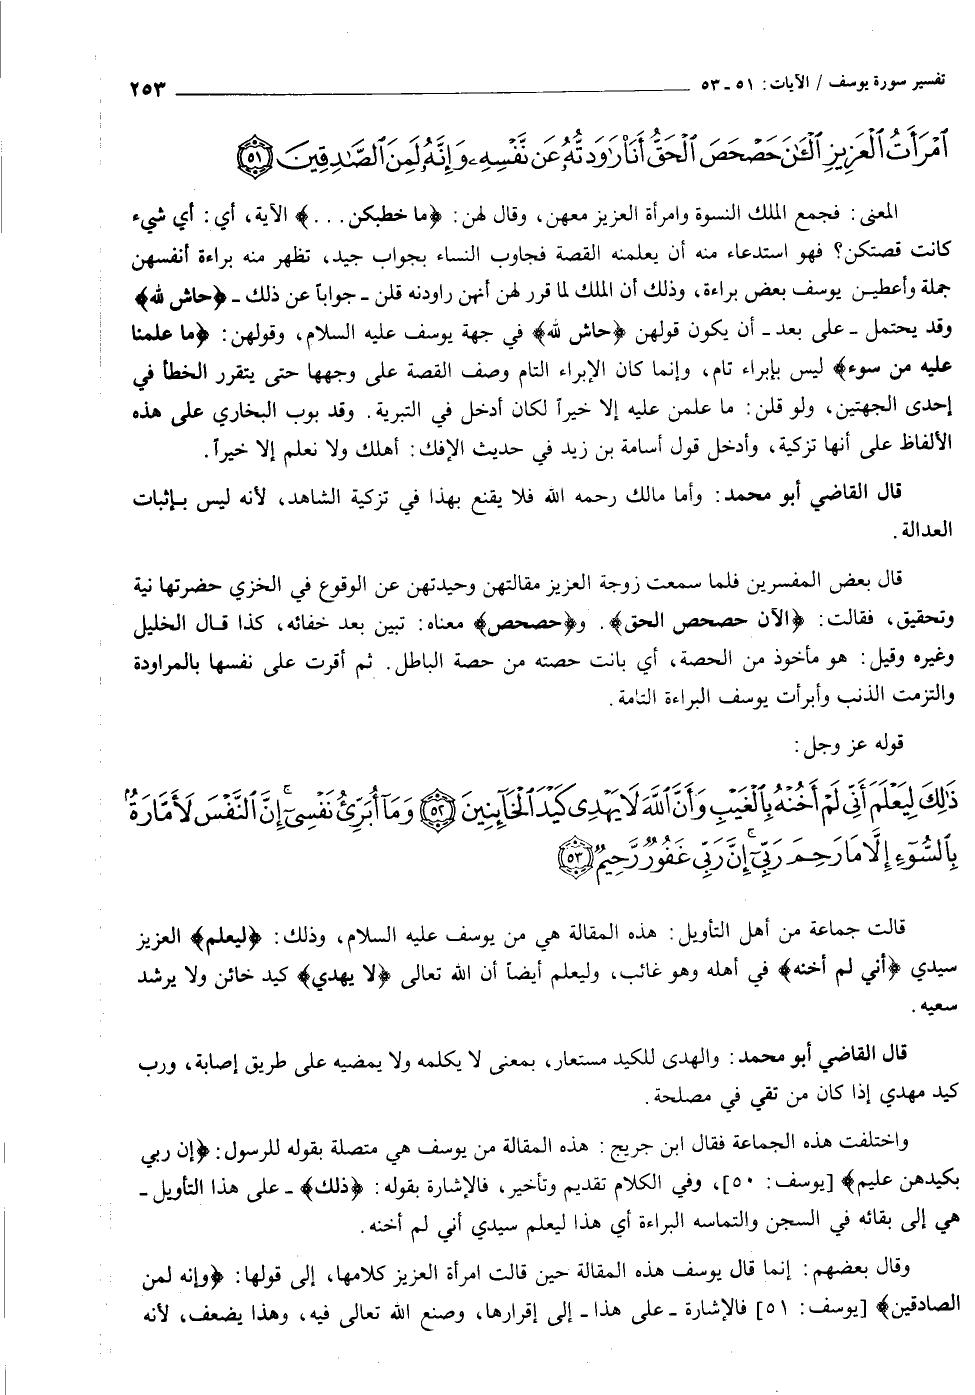 تفسير سورة يوسف / الآيات: ٥١ ـ ٥٣ ٢٥٣
ٱمْرَأَتُ ٱلْعَزِيزِ ٱلْـَٰٔنَ حَصْحَصَ ٱلْحَقُّ أَنَا۠ رَٰوَدتُّهُۥ عَن نَّفْسِهِۦ وَإِنَّهُۥ لَمِنَ ٱلصَّـٰدِقِينَ ﴿٥١﴾
المعنى: فجمع الملك النسوة وامرأة العزيز معهن، وقال لهن: ﴿ما خطبكن...﴾ الآية، أي: أي شيء
كانت قصتكن؟ فهو استدعاء منه أن يعلمنه القصة فجاوب النساء بجواب جيد، تظهر منه براءة أنفسهن
جملة وأعطين يوسف بعض براءة، وذلك أن الملك لما قرر لهن أنهن راودنه قلن ـ جواباً عن ذلك ـ ﴿حاش لله﴾
وقد يحتمل ـ على بعد ـ أن يكون قولهن ﴿حاش لله﴾ في جهة يوسف عليه السلام، وقولهن: ﴿ما علمنا
عليه من سوء﴾ ليس بإبراء تام، وإنما كان الإبراء التام وصف القصة على وجهها حتى يتقرر الخطأ في
إحدى الجهتين، ولو قلن: ما علمن عليه إلا خيراً لكان أدخل في التبرية. وقد بوب البخاري على هذه
الألفاظ على أنها تزكية، وأدخل قول أسامة بن زيد في حديث الإفك: أهلك ولا نعلم إلا خيراً.
قال القاضي أبو محمد: وأما مالك رحمه الله فلا يقنع بهذا في تزكية الشاهد، لأنه ليس بإثبات
العدالة.
قال بعض المفسرين فلما سمعت زوجة العزيز مقالتهن وحيدتهن عن الوقوع في الخزي حضرتها نية
وتحقيق، فقالت: ﴿الآن حصحص الحق﴾. و﴿حصحص﴾ معناه: تبين بعد خفائه، كذا قال الخليل
وغيره وقيل: هو مأخوذ من الحصة، أي بانت حصته من حصة الباطل. ثم أقرت على نفسها بالمراودة
والتزمت الذنب وأبرأت يوسف البراءة التامة.
قوله عز وجل:
ذَٰلِكَ لِيَعْلَمَ أَنِّى لَمْ أَخُنْهُ بِٱلْغَيْبِ وَأَنَّ ٱللَّهَ لَا يَهْدِى كَيْدَ ٱلْخَآئِنِينَ ﴿٥٢﴾ وَمَآ أُبَرِّئُ نَفْسِىٓ ۚ إِنَّ ٱلنَّفْسَ لَأَمَّارَةٌۢ
بِٱلسُّوٓءِ إِلَّا مَا رَحِمَ رَبِّىٓ ۚ إِنَّ رَبِّى غَفُورٌ رَّحِيمٌ ﴿٥٣﴾
قالت جماعة من أهل التأويل: هذه المقالة هي من يوسف عليه السلام، وذلك: ﴿ليعلم﴾ العزيز
سيدي ﴿أني لم أخنه﴾ في أهله وهو غائب، وليعلم أيضاً أن الله تعالى ﴿لا يهدي﴾ كيد خائن ولا يرشد
سعيه.
قال القاضي أبو محمد: والهدى للكيد مستعار، بمعنى لا يكلمه ولا يمضيه على طريق إصابة، ورب
كيد مهدي إذا كان من تقي في مصلحة.
واختلفت هذه الجماعة فقال ابن جريج: هذه المقالة من يوسف هي متصلة بقوله للرسول: ﴿إن ربي
بكيدهن عليم﴾ [يوسف: ٥٠]، وفي الكلام تقديم وتأخير، فالإشارة بقوله: ﴿ذلك﴾ ـ على هذا التأويل ـ
هي إلى بقائه في السجن والتماسه البراءة أي هذا ليعلم سيدي أني لم أخنه.
وقال بعضهم: إنما قال يوسف هذه المقالة حين قالت امرأة العزيز كلامها، إلى قولها: ﴿وإنه لمن
الصادقين﴾ [يوسف: ٥١] فالإشارة ـ على هذا ـ إلى إقرارها، وصنع الله تعالى فيه، وهذا يضعف، لأنه